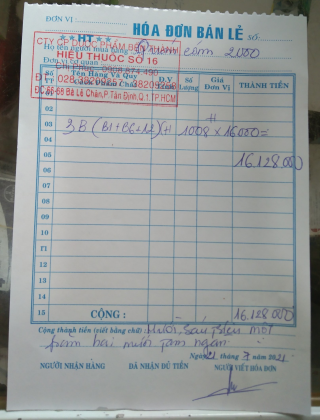 ĐƠN VỊ:
HÓA ĐƠN BÁN LẺ
SỐ
**HT**
CTY CP DƯỢC PHẨM BẾN THÀNH
Họ tên người mua hàng
cẩm 2000
HIỆU THUỐC SỐ 16
Đơn vị cơ quan
ĐC:66-68 Bà Lê Chân,P.Tân Định,Q.1,TP.HCM
SỐ TT
Tên Hàng Và Quy Cách Phẩm
Đ.V Tính
Số Lượng
Giá Đơn Vị
THÀNH TIỀN
01
02
03 3B (B1+B6+12) 1008 x 16000=
04
05 16.128.000
06
07
08
09
10
11
12
13
14
15 CỘNG: 16.128.000
Cộng thành tiền (viết bằng chữ): Mười sáu triệu một
trăm hai mươi tám ngàn
Ngày 21 tháng 7 năm 2021
NGƯỜI NHẬN HÀNG
ĐÃ NHẬN ĐỦ TIỀN
NGƯỜI VIẾT HÓA ĐƠN